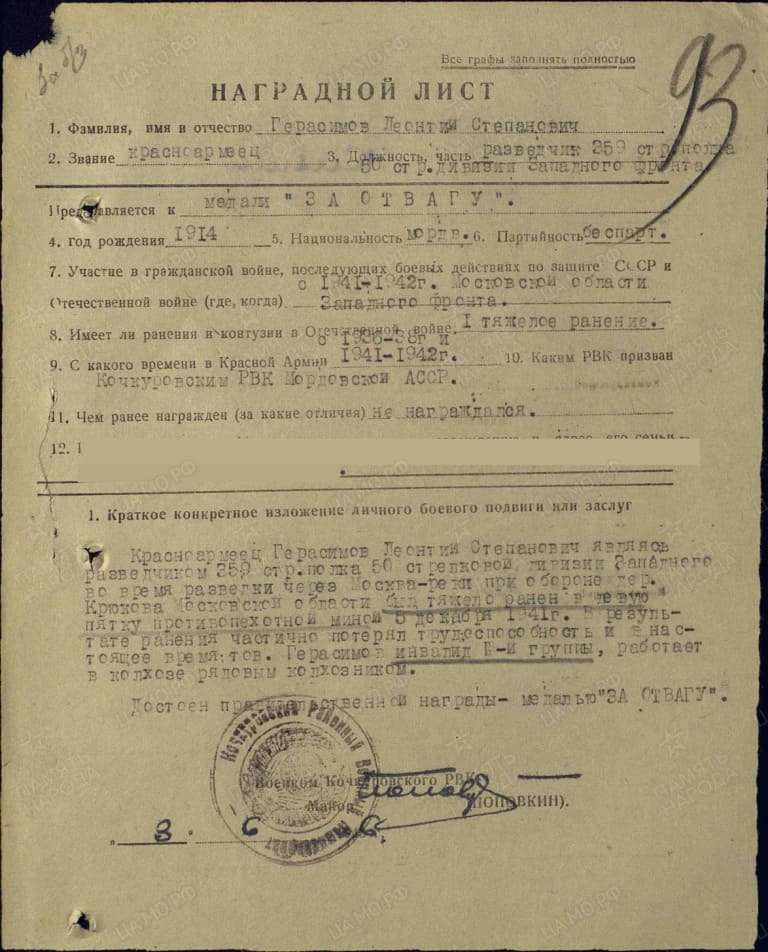 За б/з
Все графы заполнять полностью
93
НАГРАДНОЙ ЛИСТ
1. Фамилия, имя и отчество Герасимов Леонтий Степанович
2. Звание красноармеец 3. Должность, часть разведчик 359 стр.полка
50 стр.дивизии Западного фронта
Представляется к медали "ЗА ОТВАГУ".
4. Год рождения 1914 5. Национальность мордв. 6. Партийность беспарт.
7. Участие в гражданской войне, последующих боевых действиях по защите СССР и
с 1941-1942г. Московской области
Отечественной войне (где, когда) Западного фронта.
8. Имеет ли ранения и контузии в Отечественной войне 1 тяжелое ранение.
с 1936-38г и
9. С какого времени в Красной Армии 1941-1942г. 10. Каким РВК призван
Кочкуровским РВК Мордовской АССР.
11. Чем ранее награжден (за какие отличия) не награждался.
12.
1. Краткое конкретное изложение личного боевого подвиги или заслуг
Красноармеец Герасимов Леонтий Степанович являясь
разведчиком 359 стр.полка 50 стрелковой дивизии Западного
во время разведки через Москва-реки при обороне дер.
Крюкова Московской области был тяжело ранен в левую
пятку противопехотной миной 5 декабря 1941г. В резуль-
тате ранения частично потерял трудоспособность и в нас-
тоящее время тов. Герасимов инвалид III-й группы, работает
в колхозе рядовым колхозником.
Достоен правительственной награды- медалью "ЗА ОТВАГУ".
Кочкуровский Районный Военный Комиссариат
Военком Кочкуровского РВК
Майор (ПОПОВКИН).
„ 3 " 6